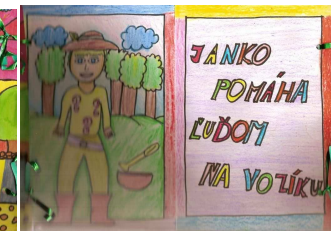 JANKO
POMÁHA
ĽUĎOM
NA VOZÍKU